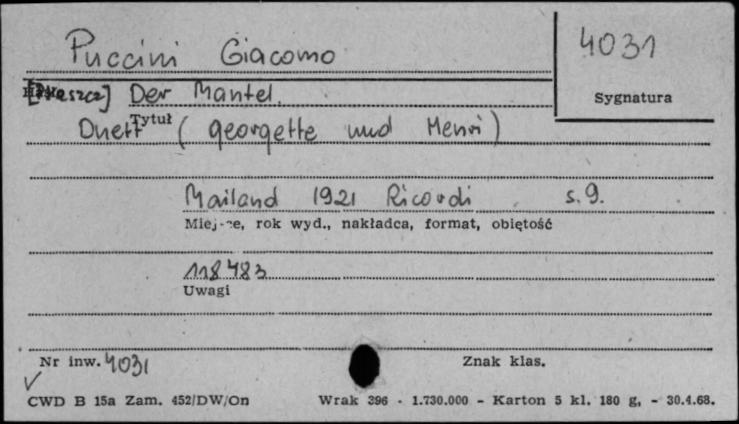 Puccini Giacomo
4031
Sygnatura
[Płaszcz] Der Mantel.
Tytuł
Duett (georgette und Henri)
Mailand 1921 Ricordi s. 9.
Miejsce, rok wyd., nakładca, format, objętość
118483
Uwagi
Nr inw. 4031
Znak klas.
CWD B 15a Zam. 452/DW/On Wrak 396 - 1.730.000 - Karton 5 kl. 180 g, - 30.4.68.